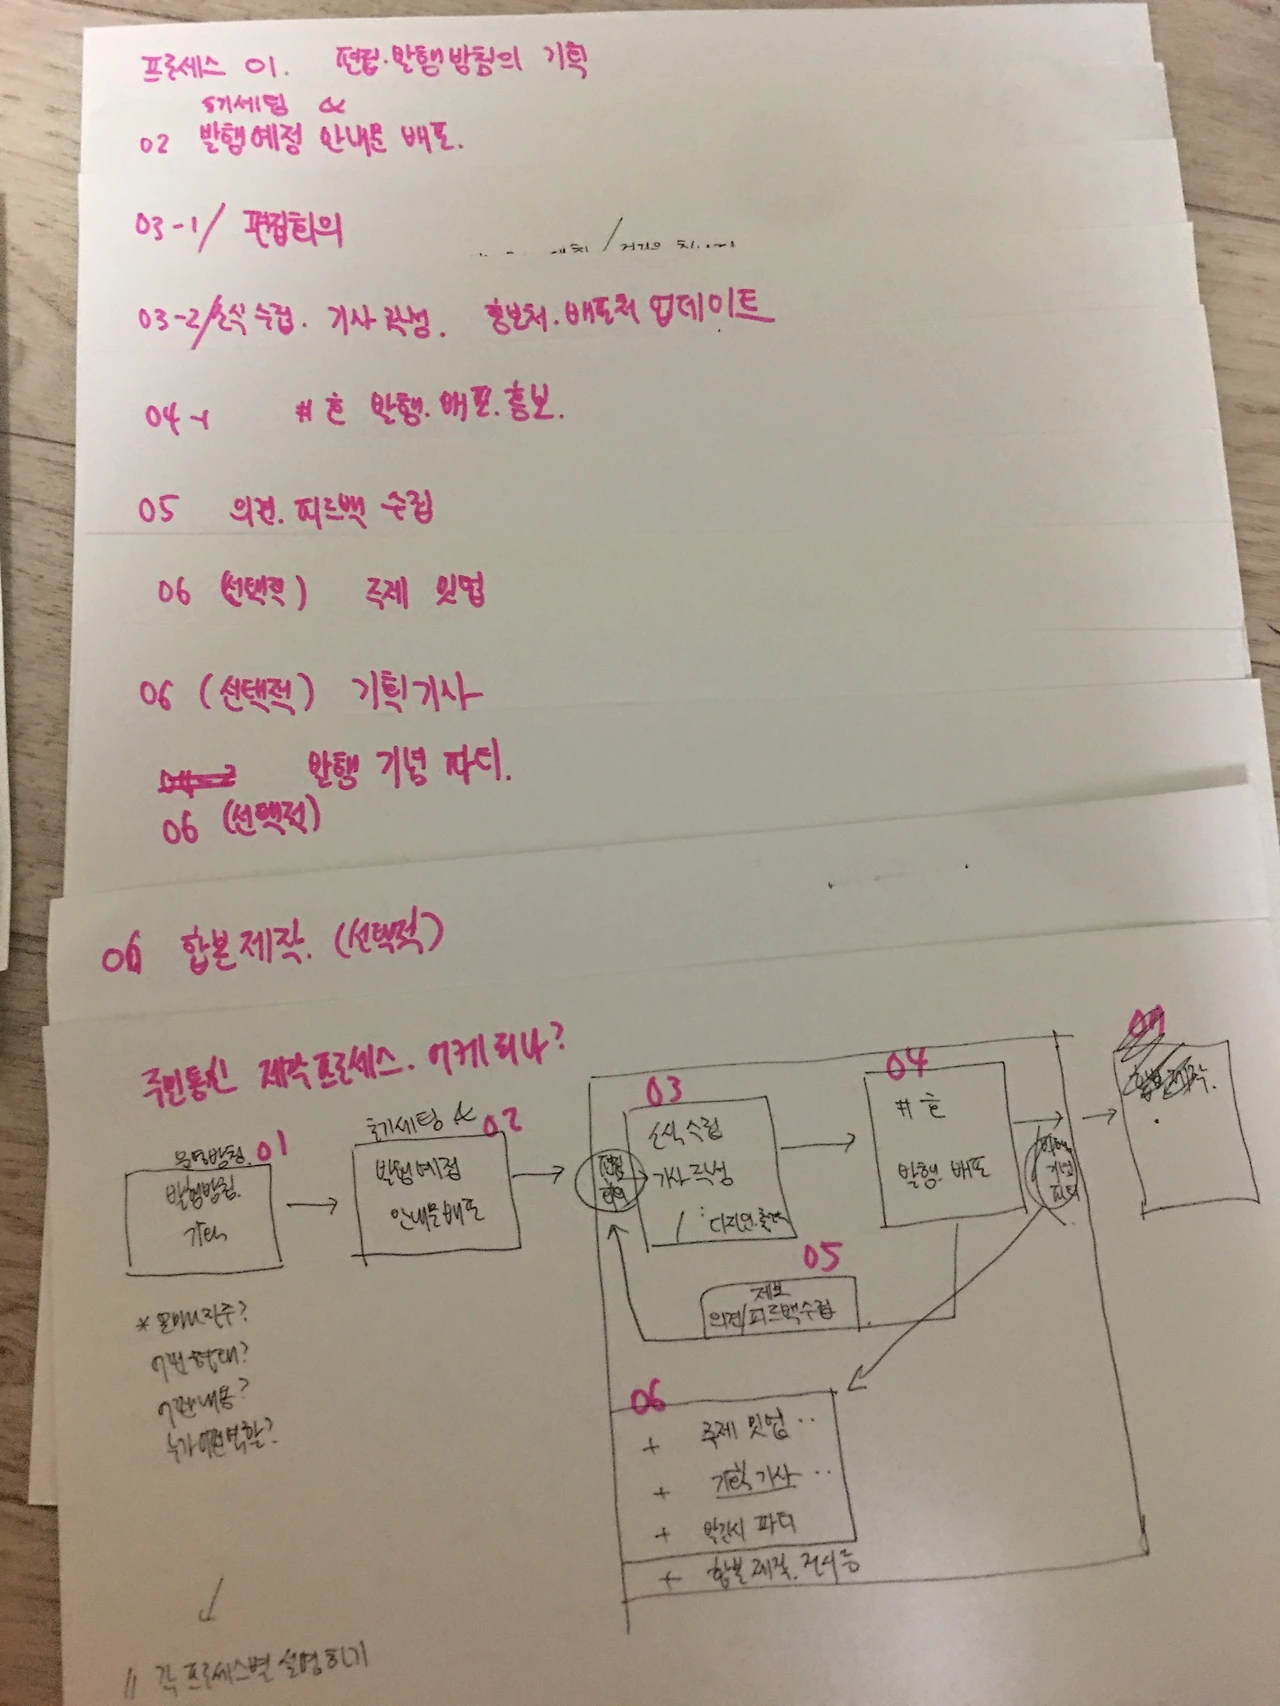 프로세스 01. 편집·발행방침의 기획
초기세팅 &
02 발행예정 안내문 배포.
03-1/ 편집회의
03-2/소식수집. 기사작성. 홍보처.배포처 업데이트
04-1 #호 발행.배포.홍보.
05 의견.피드백 수집
06 (선택적) 주제 밋업
06 (선택적) 기획기사
발행 기념 파티.
06 (선택적)
06 합본제작. (선택적)
주민통신 제작프로세스. 어케되나?
운영방침. 01
발행방침.
기획
초기세팅 & 02
발행예정
안내문배포
편집
회의
03
소식수집
기사작성
/ 디자인.출력
04
#호
발행.배포
발행
기념
파티
합본제작.
05
제보
의견/피드백수집
06
+ 주제 밋업..
+ 기획기사..
+ 발간시 파티
+ 합본제작.전시등
* 얼마나자주?
어떤형태?
어떤내용?
누가어떤역할?
// 각 프로세스별 설명하기